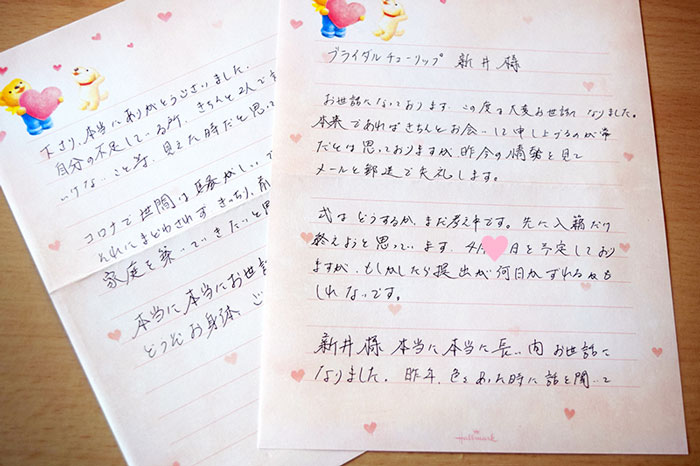 ブライダルチューリップ 新井様
お世話になっております。この度は大変お世話になりました。
本来であればきちんとお会いして申し上げるのが常
だとは思っておりますが昨今の情勢を見て
メールと郵送で失礼します。
式はどうするか、まだ考え中です。先に入籍だけ
終えようと思っています。4月 日を予定しており
ますが、もしかしたら提出が何日かずれるかも
しれないです。
新井様 本当に本当に長い間 お世話に
なりました。昨年、色々あった時に話を聞いて
下さり、本当にありがとうございました。
自分の不足している所、きちんと2人で
いけないこと等、見えた時だと思って
コロナで世間は騒がしい
それにまどわされずきっちり、
家庭を築いていきたいと思
本当に本当にお世話
どうぞお身体、ご
Hallmark